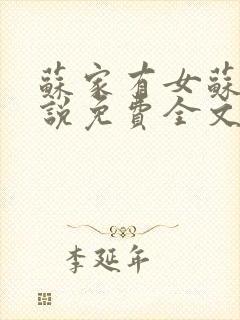 蘇家有女蘇
說免費全文
李延年